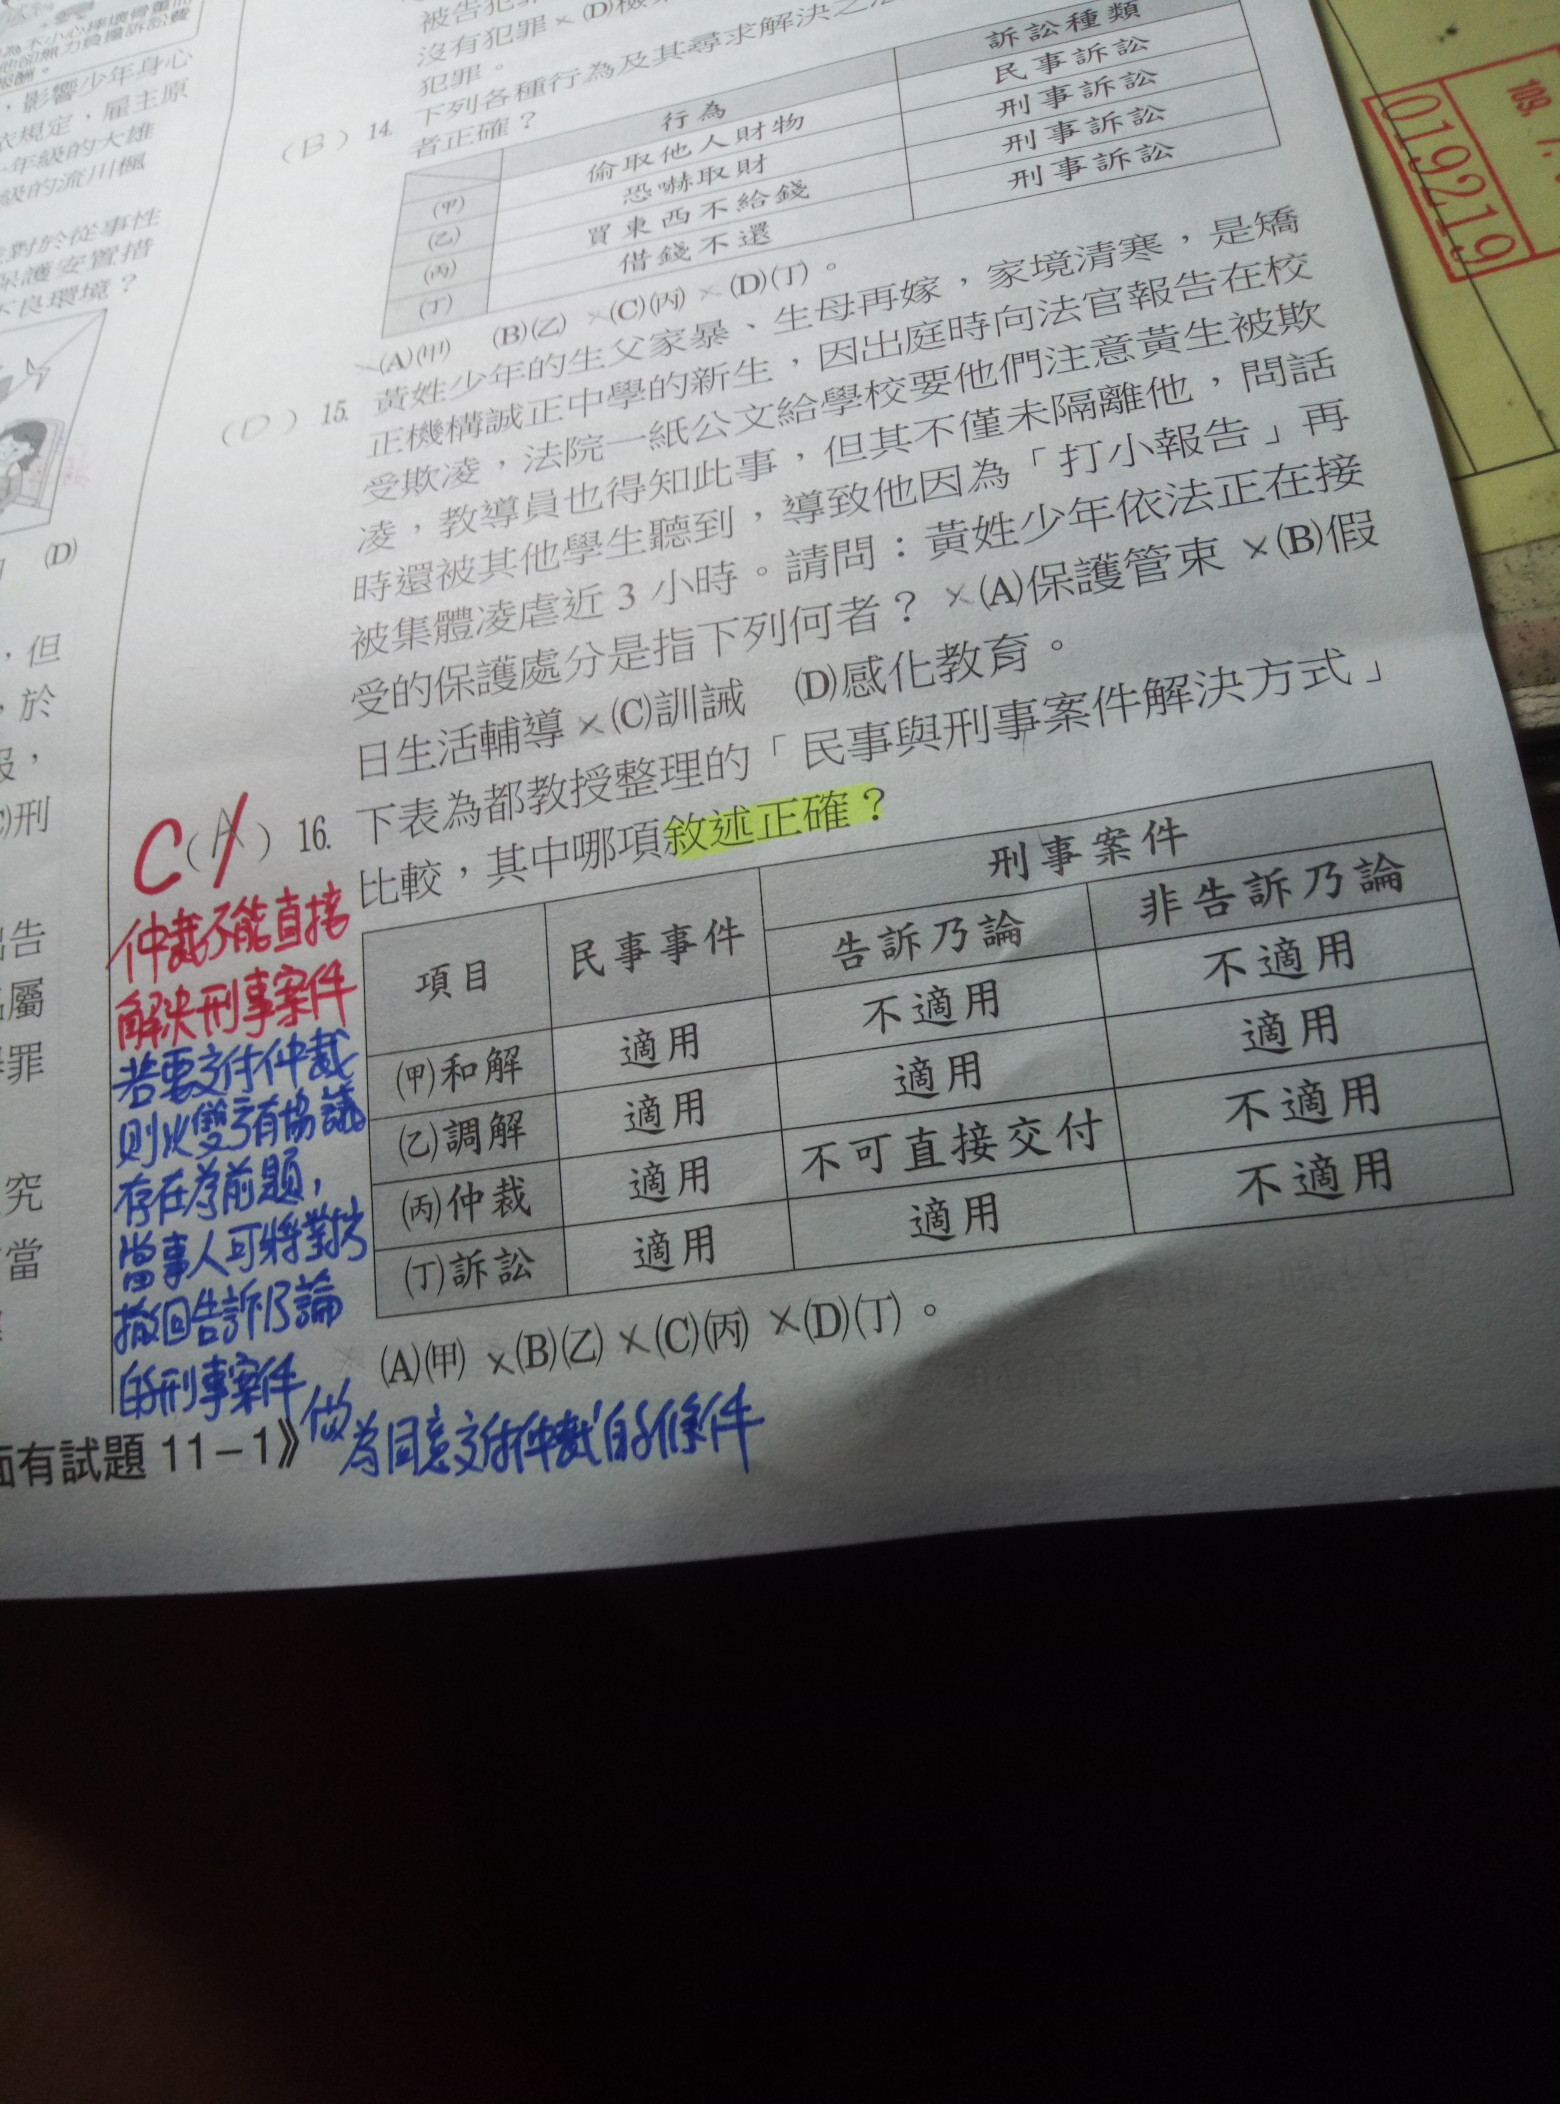 影響少年身心
依規定，雇主原
年級的大雄
級的流川楓
對於從事性
保護安置措
不良環境？
(D)
，但
，於
報，
刑
告
屬
罪
究
當
面有試題 11－1》
被告犯罪
沒有犯罪×(D)檢
犯罪。
(B) 14. 下列各種行為及其尋求解決之
者正確？
行為 訴訟種類
(甲) 偷取他人財物 民事訴訟
(乙) 恐嚇取財 刑事訴訟
(丙) 買東西不給錢 刑事訴訟
(丁) 借錢不還 刑事訴訟
×(A)(甲) (B)(乙) ×(C)(丙) ×(D)(丁)。
(D) 15. 黃姓少年的生父家暴、生母再嫁，家境清寒，是矯
正機構誠正中學的新生，因出庭時向法官報告在校
受欺凌，法院一紙公文給學校要他們注意黃生被欺
凌，教導員也得知此事，但其不僅未隔離他，問話
時還被其他學生聽到，導致他因為「打小報告」再
被集體凌虐近 3 小時。請問：黃姓少年依法正在接
受的保護處分是指下列何者？ ×(A)保護管束 ×(B)假
日生活輔導 ×(C)訓誡 (D)感化教育。
C(A) 16. 下表為都教授整理的「民事與刑事案件解決方式」
比較，其中哪項敘述正確？
項目 民事事件 刑事案件
告訴乃論 非告訴乃論
(甲)和解 適用 不適用 不適用
(乙)調解 適用 適用 適用
(丙)仲裁 適用 不可直接交付 不適用
(丁)訴訟 適用 適用 不適用
× (A)(甲) ×(B)(乙) ×(C)(丙) ×(D)(丁)。
仲裁不能直接
解決刑事案件
若要交付仲裁
則以雙方有協議
存在為前題，
當事人可將對方
撤回告訴乃論
的刑事案件 做
為同意交付仲裁的條件
019219